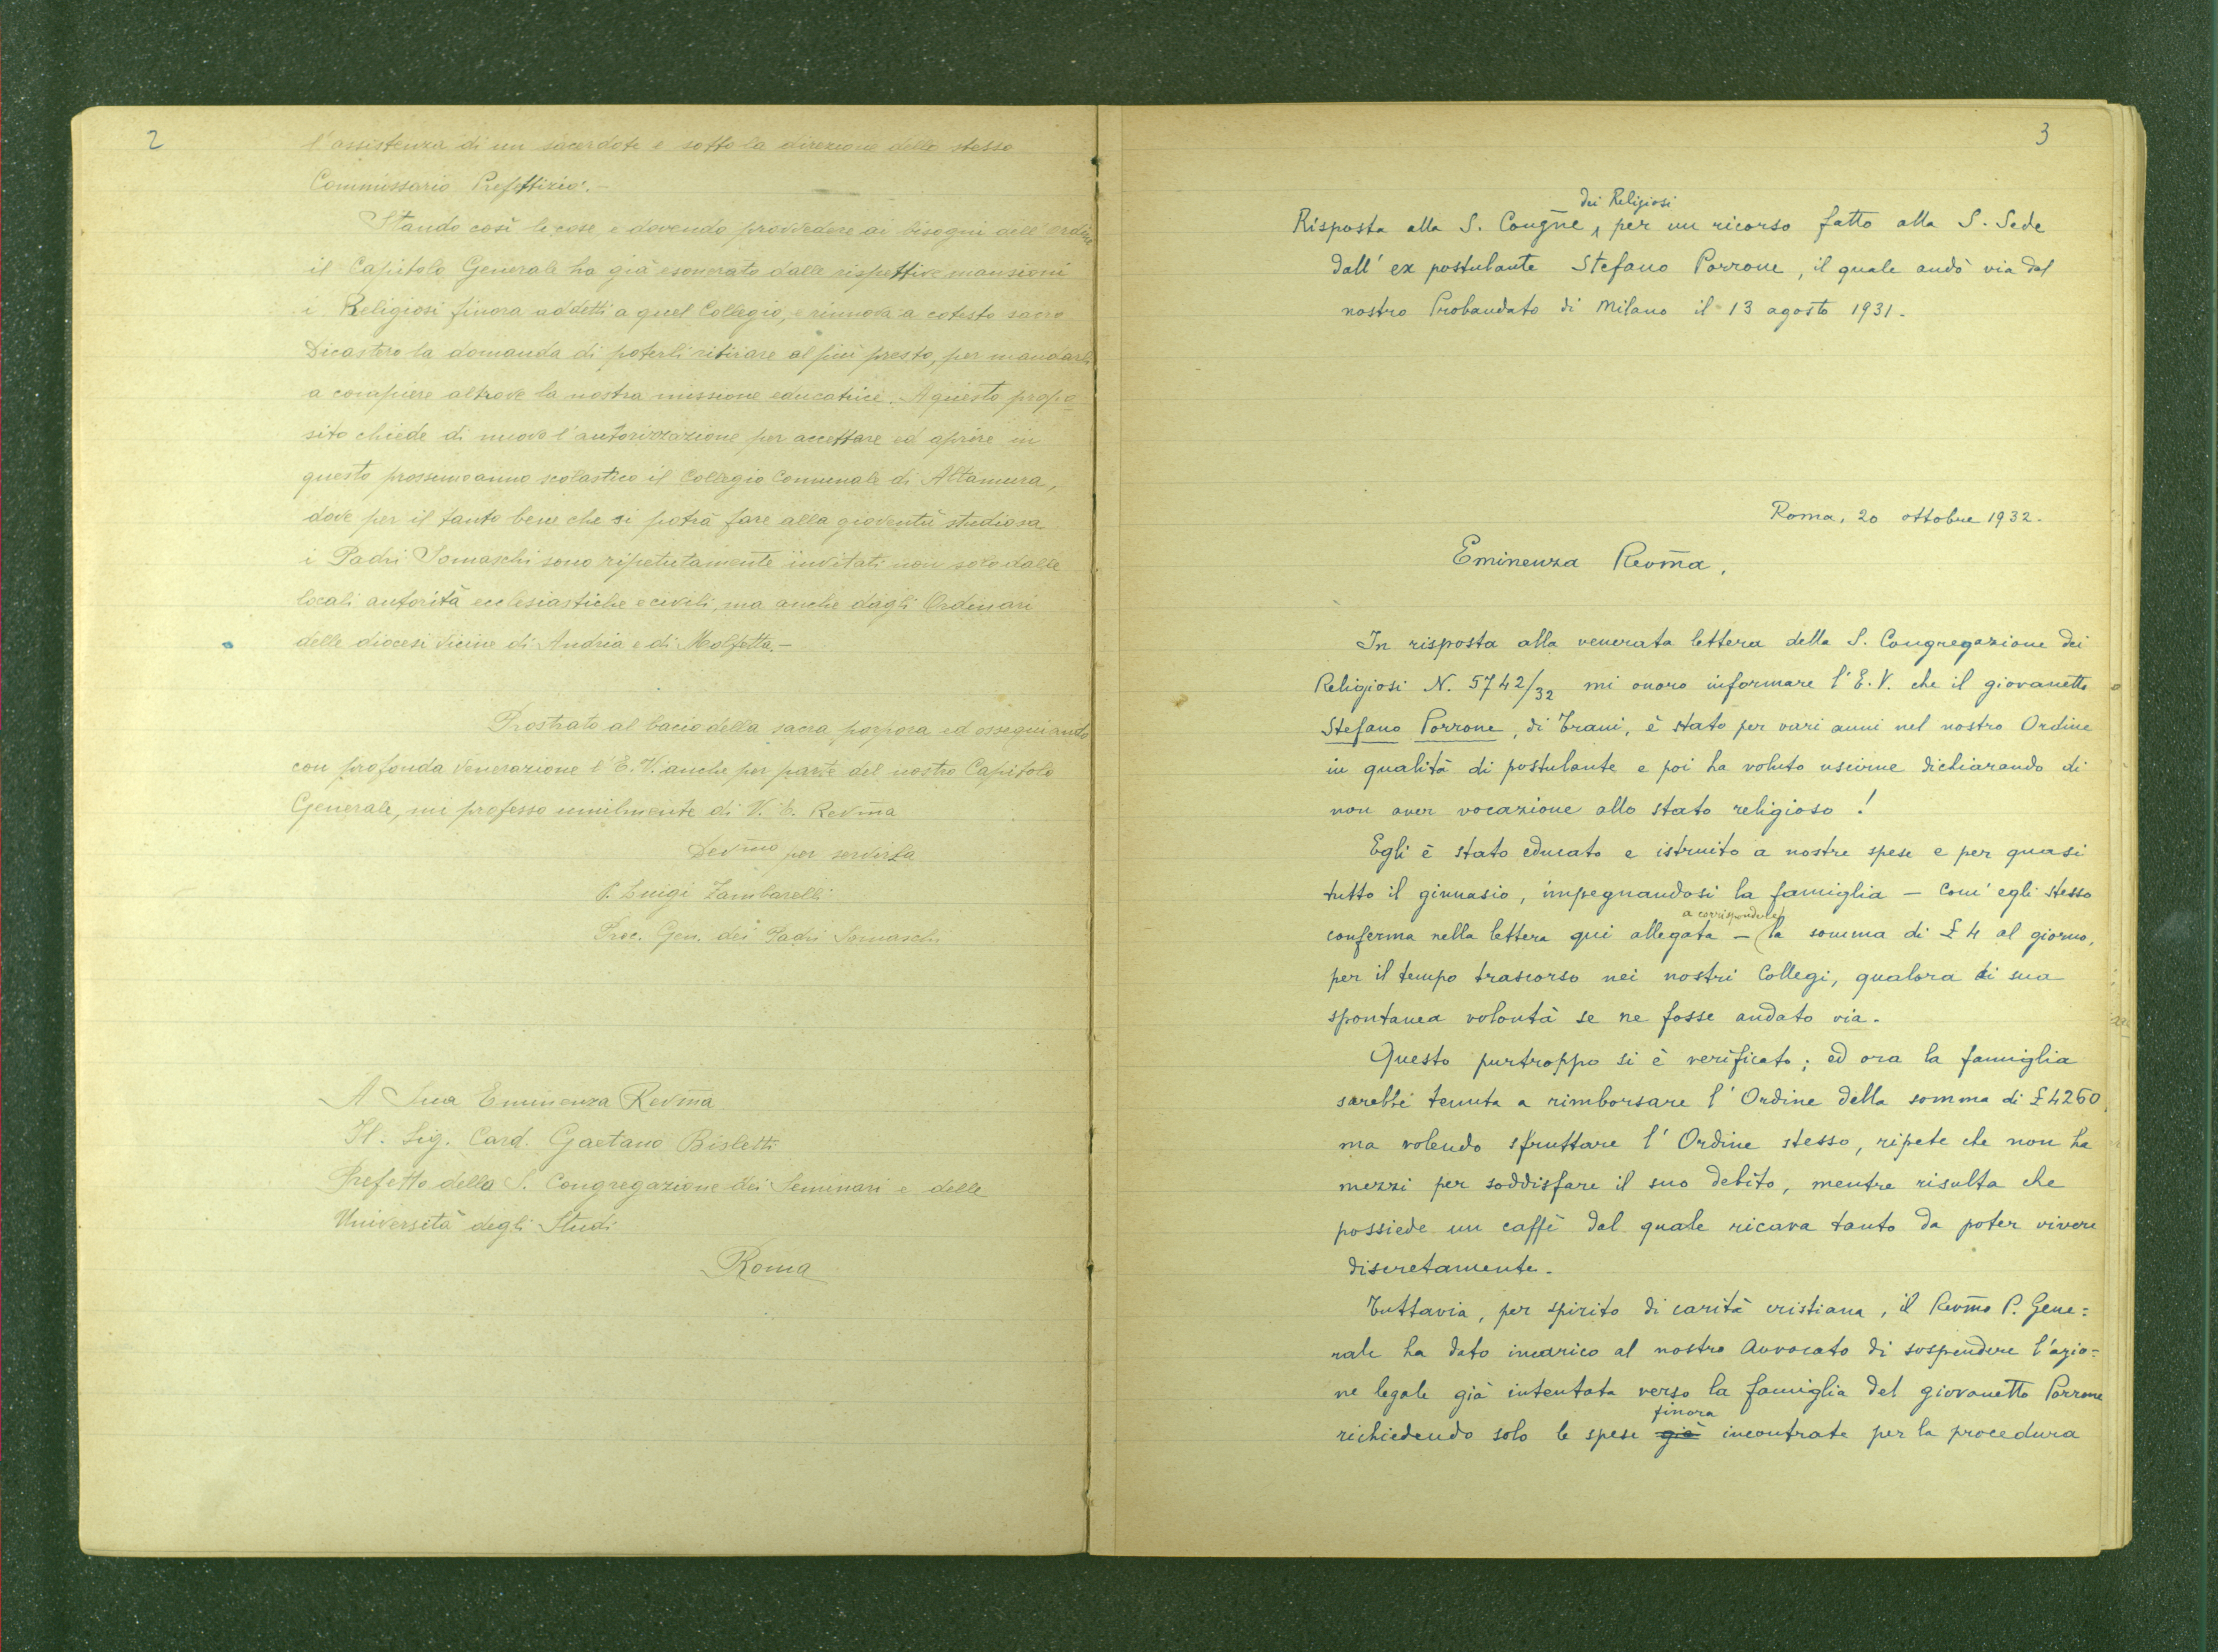 2
l'assistenza di un sacerdote e sotto la direzione dello stesso
Commissario Prefettizio.-
Stando così le cose e dovendo provvedere ai bisogni dell'ordine
il Capitolo Generale ha già esonerato dalle rispettive mansioni
i Religiosi finora addetti a quel Collegio, e rinnova a cotesto sacro
Dicastero la domanda di poterli ritirare al più presto, per mandarli
a compiere altrove la nostra missione educatrice. A questo propo-
sito chiede di nuovo l'autorizzazione per accettare ed aprire in
questo prossimo anno scolastico il Collegio Comunale di Altamura,
dove per il tanto bene che si potrà fare alla gioventù studiosa
i Padri Somaschi sono ripetutamente invitati non solo dalle
locali autorità ecclesiastiche e civili, ma anche dagli Ordinari
delle diocesi vicine di Andria e di Molfetta.-
Prostrato al bacio della sacra porpora ed ossequiando
con profonda venerazione l'E.V. anche per parte del nostro Capitolo
Generale, mi professo umilmente di V. E. Revma
Devmo per servirla
P. Luigi Zambarelli
Proc. Gen. dei Padri Somaschi
A Sua Eminenza Revma
Il Sig. Card. Gaetano Bisleti
Prefetto della S. Congregazione dei Seminari e delle
Università degli Studi
Roma
3
dei Religiosi
Risposta alla S. Congne, per un ricorso fatto alla S. Sede
dall' ex postulante Stefano Porrone, il quale andò via dal
nostro Probandato di Milano il 13 agosto 1931.
Roma, 20 ottobre 1932.
Eminenza Revma,
In risposta alla venerata lettera della S. Congregazione dei
Religiosi N. 5742/32 mi onoro informare l'E.V. che il giovanetto
Stefano Porrone, di Trani, è stato per vari anni nel nostro Ordine
in qualità di postulante e poi ha voluto uscirne dichiarando di
non aver vocazione allo stato religioso!
Egli è stato educato e istruito a nostre spese e per quasi
tutto il ginnasio, impegnandosi la famiglia - com' egli stesso
a corrispondere
conferma nella lettera qui allegata - la somma di £ 4 al giorno,
per il tempo trascorso nei nostri Collegi, qualora di sua
spontanea volontà se ne fosse andato via.
Questo purtroppo si è verificato; ed ora la famiglia
sarebbe tenuta a rimborsare l' Ordine della somma di £ 4260
ma volendo sfruttare l' Ordine stesso, ripete che non ha
mezzi per soddisfare il suo debito, mentre risulta che
possiede un caffè dal quale ricava tanto da poter vivere
discretamente.
Tuttavia, per spirito di carità cristiana, il Revmo P. Gene=
rale ha dato incarico al nostro Avvocato di sospendere l'azio=
ne legale già intentata verso la famiglia del giovanetto Porrone
finora
richiedendo solo le spese già incontrate per la procedura